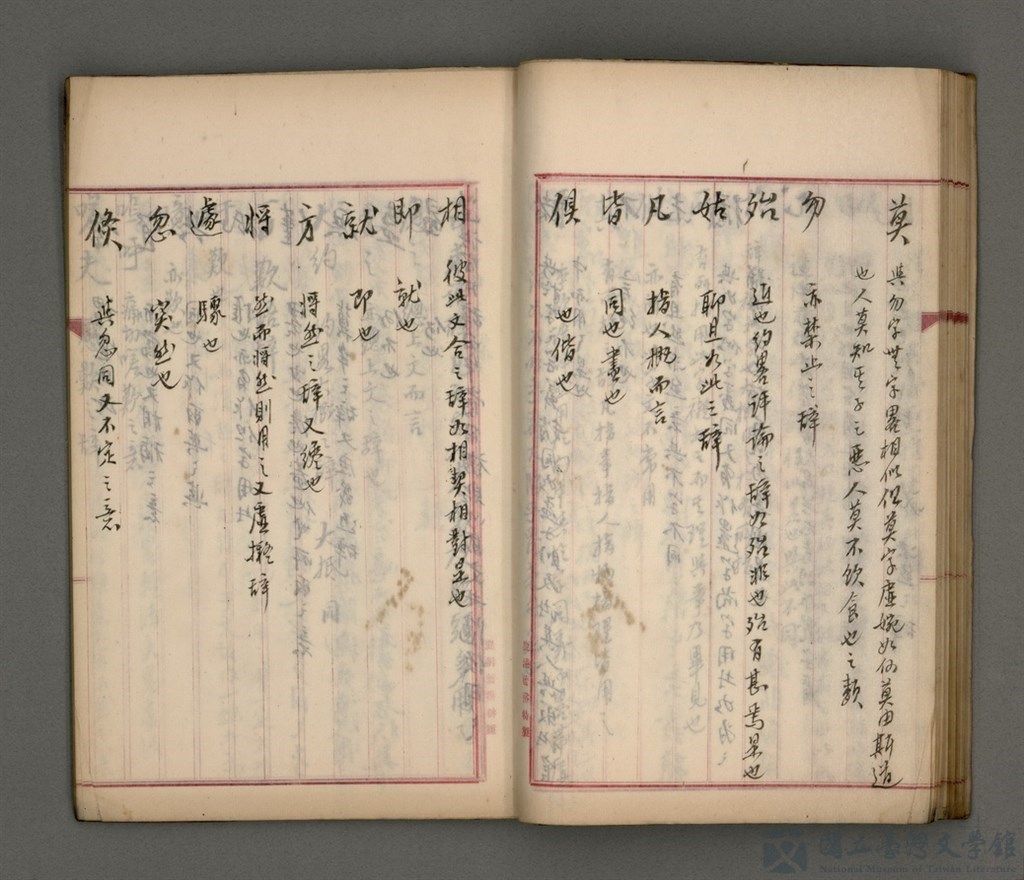 莫 與勿字無字畧相似但莫字虛婉如何莫由斯道
也人莫知其子之惡人莫不飲食也之類
勿 亦禁止之辞
殆 近也約畧評論之辞如殆非也殆有甚焉是也
姑 聊且如此之辞
凡 指人概而言
皆 同也盡也
俱 也偕也
相 彼此文合之辞如相契相對是也
即 就也
就 即也
方 將然之辞又纔也
將 然而將然則用之又虛擬辞
遽 驟也
忽 突然也
倏 與忽同又不定之意
國立臺灣文學館
National Museum of Taiwan Literature